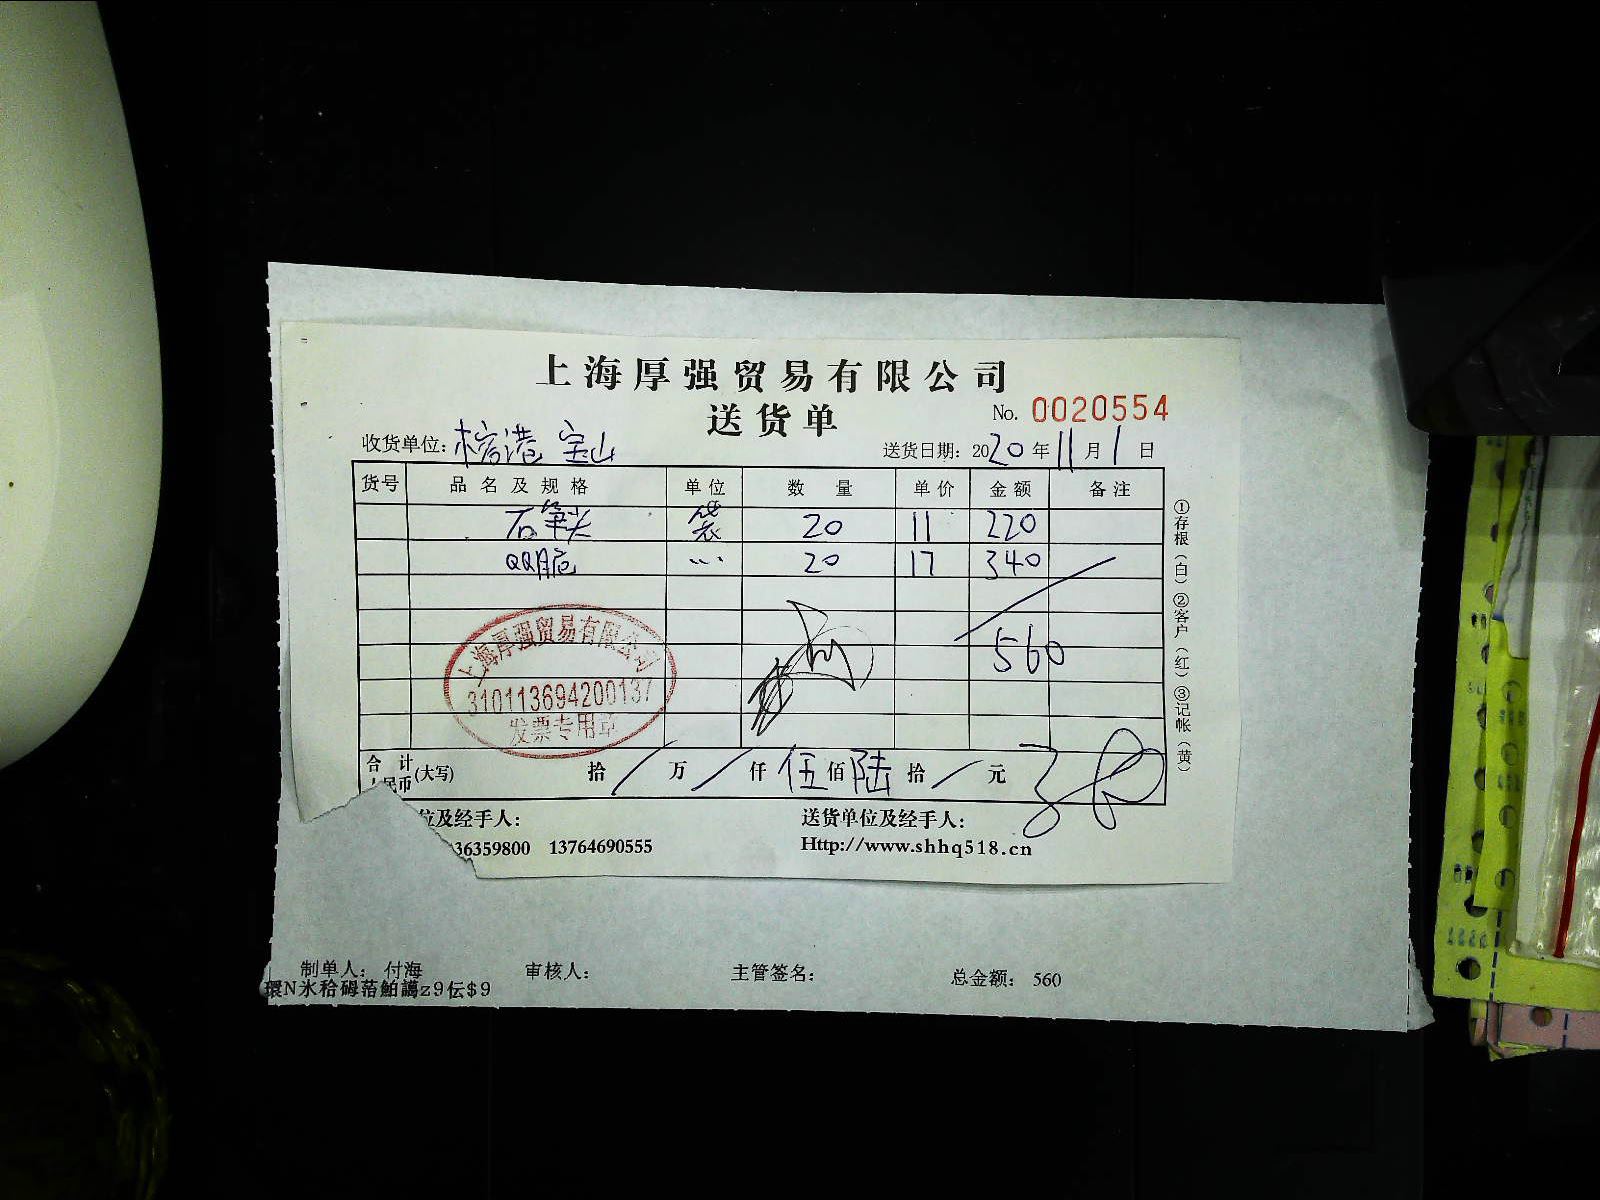 上海厚强贸易有限公司
送货单 No. 0020554
收货单位: 榕港 宝山 送货日期: 2020年11月1日
货号 品名及规格 单位 数量 单价 金额 备注
石笋尖 袋 20 11 220
QQ脆 〃 20 17 340
560
上海厚强贸易有限公司
310113694200137
发票专用章
合计人民币(大写) 拾 / 万 / 仟 伍 佰 陆 拾 / 元
位及经手人: 送货单位及经手人:
36359800 13764690555 Http://www.shhq518.cn
①存根(白)②客户(红)③记帐(黄)
制单人: 付海 审核人: 主管签名: 总金额: 560